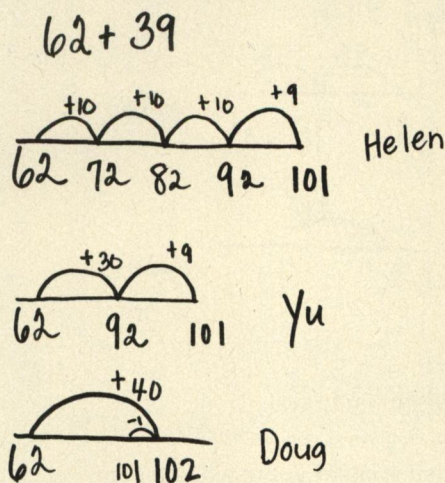 62 + 39
+10 +10 +10 +9
62 72 82 92 101 Helen
+30 +9
62 92 101 Yu
+40
-1
62 101 102 Doug